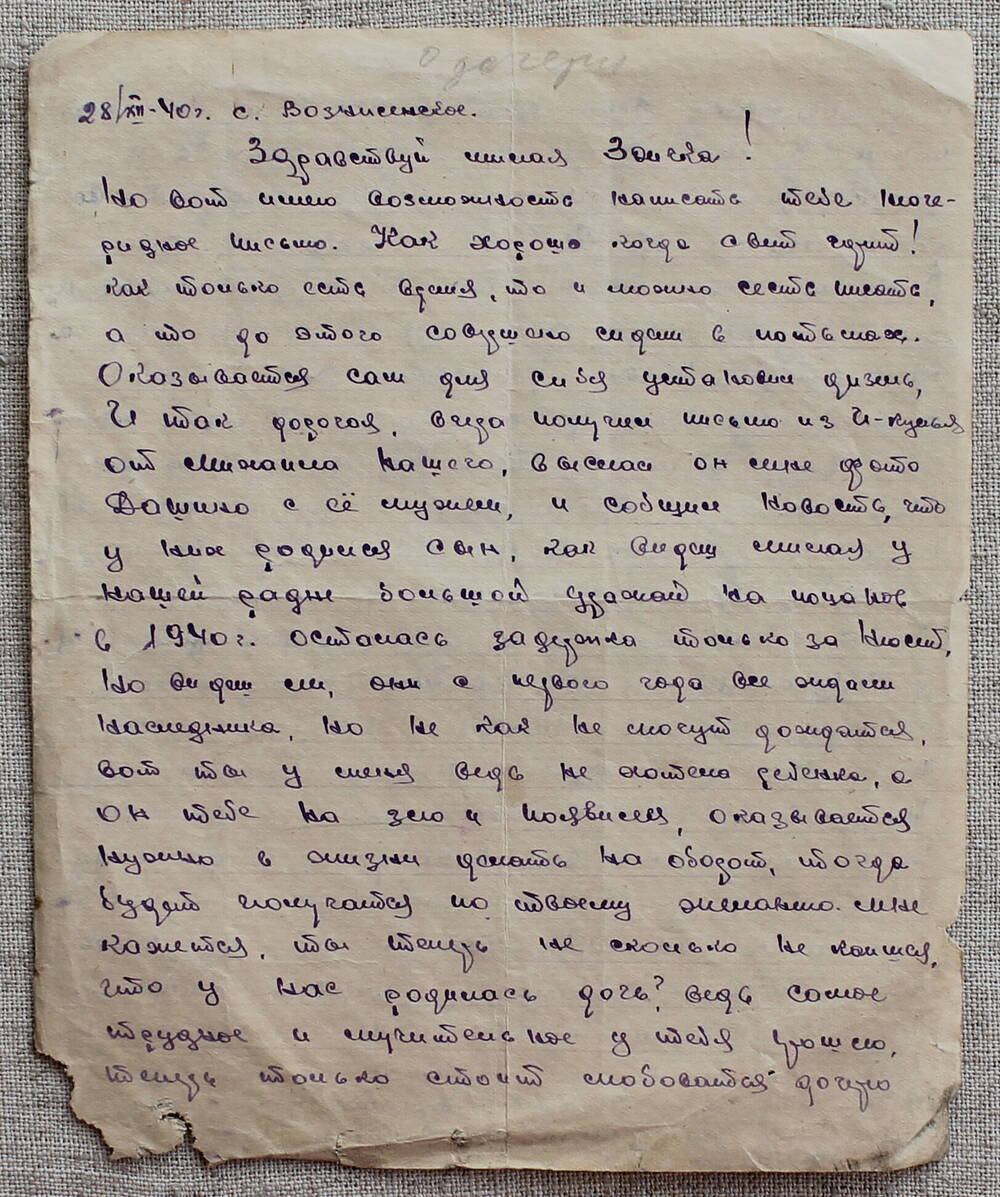 о дочери
28/XII-40г. с. Вознисенское.
Здравствуй милая Зоичка!
Но вот имею возможность написать тебе
ридное письмо. Как хорошо когда свет горит!
как только есть время, то и можно сесть писать,
а то до этого совершено сидел в потьмах.
Оказывается сам для себя установил жизнь,
И так дорогая, вчера получил письмо из
от Михаила нашего, выслал он мне фото
Дашино с её мужем, и собщил новость, что
у них родился сын, как видиш милая у
нашей радне большой уражай на поцанов
в 1940г. осталась задержка только за
Но видиш ли, они с первого года все ждали
наследника, но не как не могут дождатся,
вот ты у меня ведь не хотела ребенка, а
он тебе на зло и появился, оказывается
нужно в жизни делать на оборот, тогда
будет получатся по твоему желанию. мне
кажется, ты теперь не сколько не каишся,
что у нас родилась дочь? ведь самое
трудное и мучительное у тебя прошло,
теперь только стоит любоватся дочерю